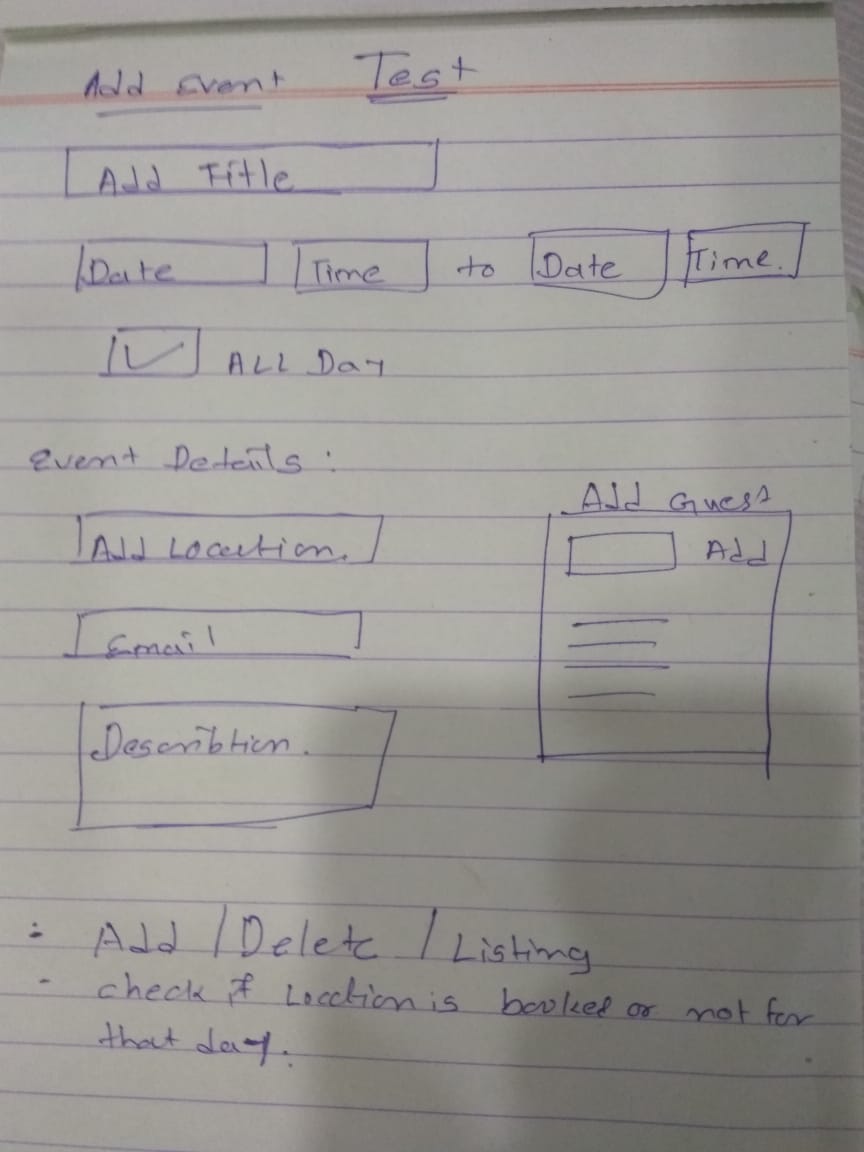 Add Event Test
Add Title
Date Time to Date Time.
ALL Day
Event Details:
Add Guest
Add Location.
Add
Email
Describtion.
- Add / Delete / Listing
- check if Location is booked or not for
that day.